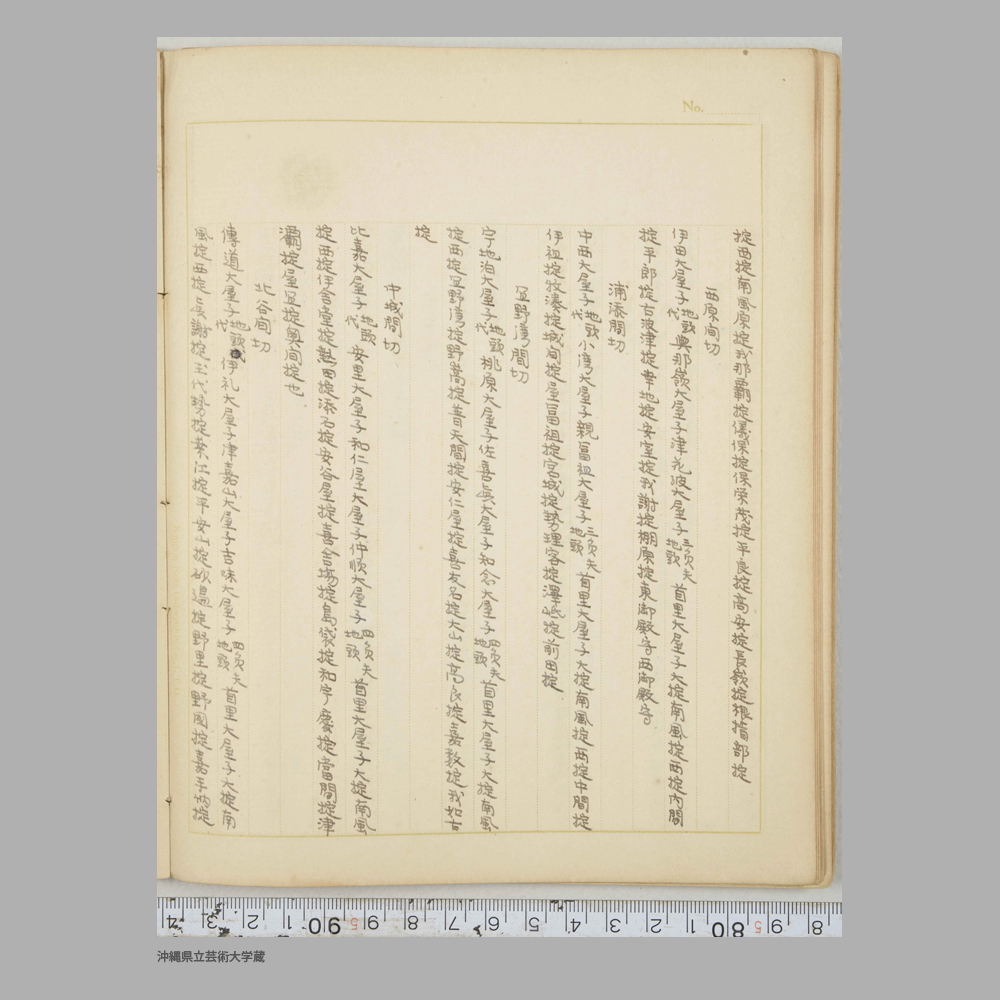 No.
掟西掟南風原掟我那覇掟儀保掟保栄茂掟平良掟高安掟長嶺掟根指部掟
西原間切
伊田大屋子地頭代與那嶺大屋子津花波大屋子三員夫地頭首里大屋子大掟南風掟西掟内間
掟平郎掟古波津掟幸地掟安室掟我謝掟棚原掟東御殿守西御殿守
浦添間切
中西大屋子地頭代小湾大屋子親富祖大屋子三員夫地頭首里大屋子大掟南風掟西掟中間掟
伊祖掟牧湊掟城間掟屋富祖掟宮城掟勢理客掟澤岻掟前田掟
宜野湾間切
宇地泊大屋子地頭代桃原大屋子佐喜真大屋子和念大屋子四員夫地頭首里大屋子大掟南風
掟西掟宜野湾掟野嵩掟普天間掟安仁屋掟喜友名掟大山掟高良掟嘉数掟我如古
掟
中城間切
比嘉大屋子地頭代安里大屋子和仁屋大屋子仲順大屋子四員夫地頭首里大屋子大掟南風
掟西掟伊舎堂掟熱田掟添石掟安谷屋掟喜舎場掟島袋掟和宇慶掟當間掟津
灞掟屋宜掟奥間掟也
北谷間切
傳道大屋子地頭代伊礼大屋子津嘉山大屋子吉味大屋子四員夫地頭首里大屋子大掟南
風掟西掟真謝掟玉代勢掟桑江掟平安山掟砂邊掟野里掟野國掟嘉手納掟
4 3 2 1 90 5 9 8 7 6 5 4 3 2 1 80 5 9 8
沖縄県立芸術大学蔵